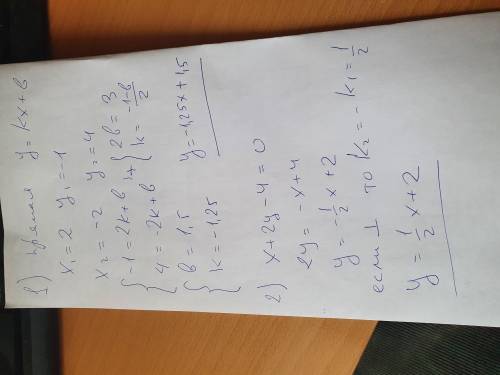 1) прямая y = kx + b
x₁ = 2 y₁ = -1
x₂ = -2 y₂ = 4
{ -1 = 2k + b | + { 2b = 3
{ 4 = -2k + b { k = (-1-b)/2
{ b = 1,5
{ k = -1,25 y = -1,25x + 1,5
2) x + 2y - 4 = 0
2y = -x + 4
y = -1/2 x + 2
если ⊥ то k₂ = -k₁ = 1/2
y = 1/2 x + 2